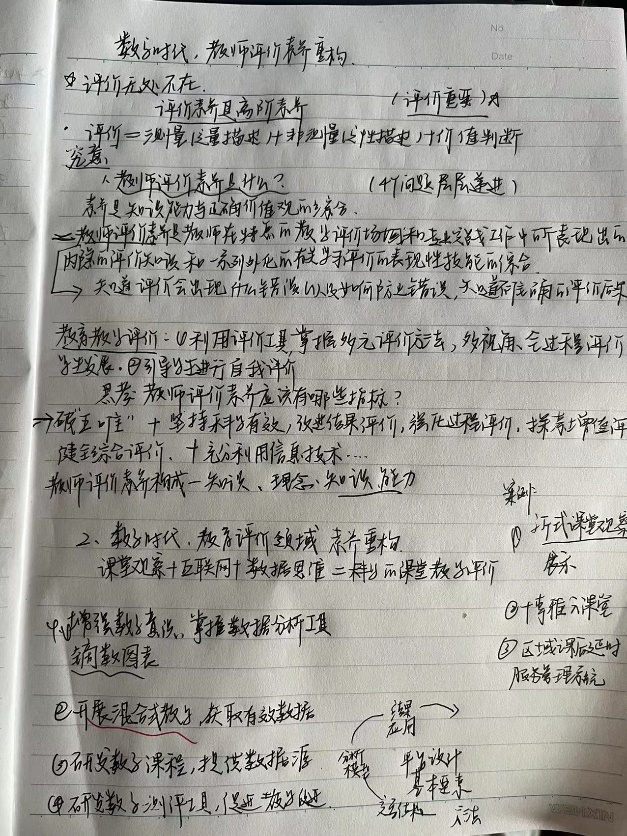 No.
Date
数字时代,教师评价素养重构.
评价无处不在.
评价素养是高阶素养 (评价重要)
· 评价=测量(量描述)+非测量(性描述)+价值判断
1、教师评价素养是什么? (4个问题层层递进)
素养是知识能力与正确价值观的综合.
教师评价素养是教师在特定的教学评价场域和专业实践工作中所表现出的
内隐的评价知识和一系列外化的有关学评价的表现性技能的综合.
→ 知道评价会出现什么错误以及如何防止错误,知道不正确的评价后果
教育教学评价:①利用评价工具,掌握多元评价方法,多视角、全过程评价
学生发展.②引导学生进行自我评价
思考 教师评价素养应该有哪些指标?
→破"五唯"+坚持科学有效,改进结果评价,强化过程评价,探索增值评
健全综合评价、+充分利用信息技术····
教师评价素养构成—知识、理念、知识、能力
2、数字时代,教育评价领域 素养重构
课堂观察+互联网+数据思维=科学的课堂教学评价
案例:
① 课堂观察
展示
增强数字意识,掌握数据分析工具
数图表
② 课堂
③ 区域课后延时
服务管理系统
②开展混合式教学,获取有效数据
③研发数字课程,提供数据源
④研发数字测评工具,促进教学
应用
分析
平台设计
基本要素
方法